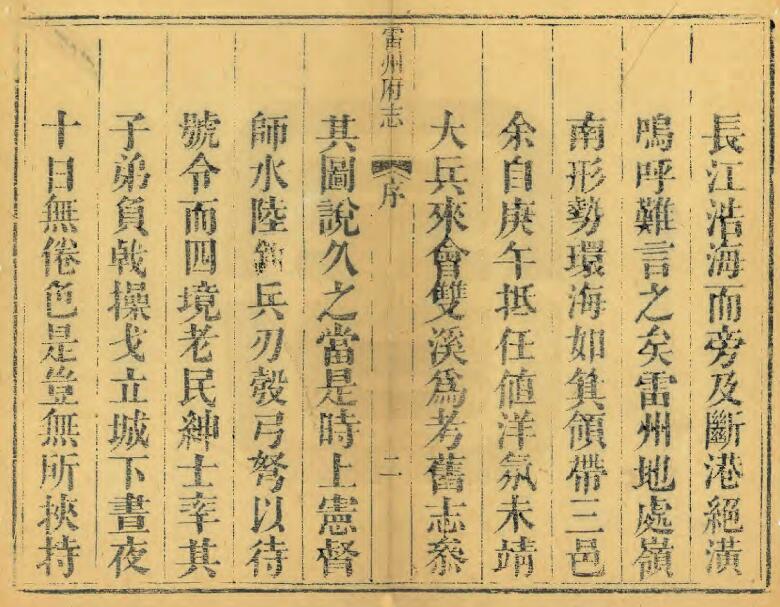 長江浩海而旁及斷港絕潢
嗚呼難言之矣雷州地處嶺
南形勢環海如箕領帶三邑
余自庚午抵任値洋氛未靖
大兵來會雙溪爲考舊志叅
雷州府志
序
二
其圖說久之當是時上憲督
師水陸 兵刃彀弓弩以待
號令而四境老民紳士率其
子弟負戟操戈立城下晝夜
十日無倦色是豈無所挾持